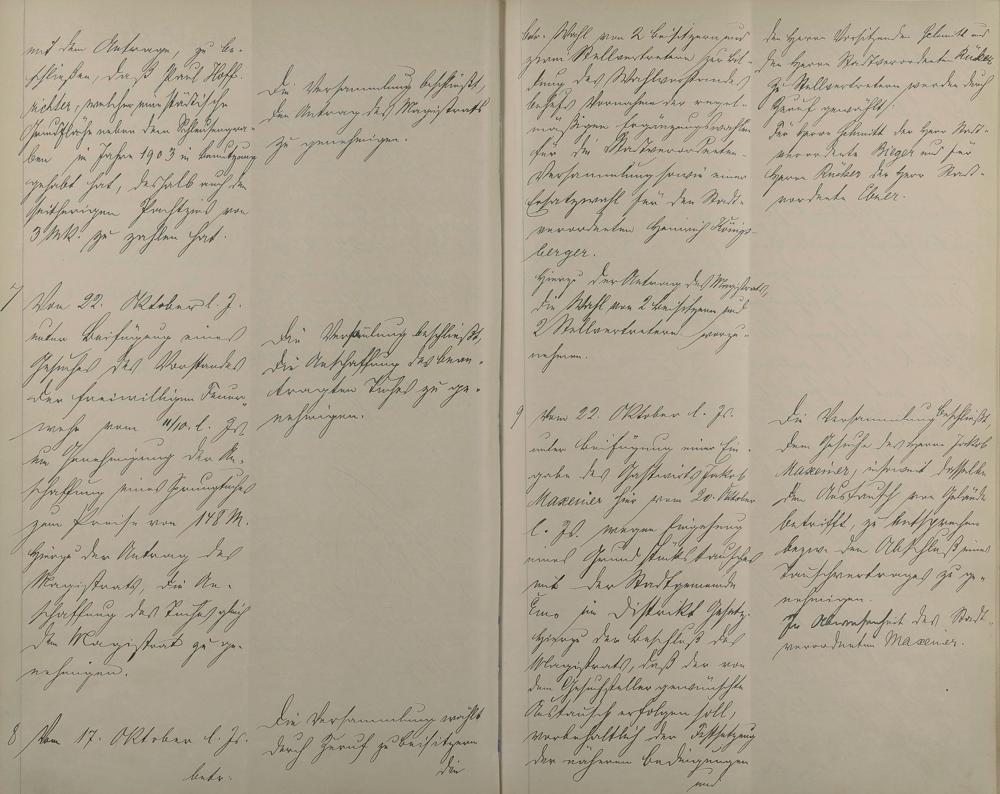 mit dem Antrage, zu be-
schließen, daß Paul Hoff-
richter, welcher eine städtische
Grundfläche neben dem Schleusengra-
ben im Jahre 1903 in Benutzung
gehabt hat, deshalb auch den
seitherigen Pachtzins von
3 Mk. zu zahlen hat.
Die Versammlung beschließt,
den Antrag des Magistrats
zu genehmigen.
7 Vom 22. Oktober l. J.
unter Beifügung eines
Gesuches des Vorstandes
der freiwilligen Feuer-
wehr vom 11/10. l. Js.
um Genehmigung der An-
schaffung eines Sprungtuches
zum Preise von 148 M.
Hierzu der Antrag des
Magistrats, die An-
schaffung des Tuches gleich
dem Magistrat zu ge-
nehmigen.
Die Versammlung beschließt,
die Anschaffung des bean-
tragten Tuches zu ge-
nehmigen.
8 Vom 17. Oktober l. Js.
betr.
Die Versammlung wählt
durch Zuruf zu Beisitzern
die
betr. Wahl von 2 Beisitzern und
zwei Stellvertretern zur Bil-
dung des Wahlvorstandes
behufs Vornahme der regel-
mäßigen Ergänzungswahlen
für die Stadtverordneten-
Versammlung sowie einer
Ersatzwahl für den Stadt-
verordneten Heinrich Königs-
berger.
Hierzu der Antrag des Magistrats,
die Wahl von 2 Beisitzern und
2 Stellvertretern vorzu-
nehmen.
den Herrn Vorsitzenden Schmitt und
den Herrn Stadtverordneten Rücker
Zu Stellvertretern werden durch
Zuruf gewählt:
Für Herrn Schmitt der Herr Stadt-
verordnete Bieger und für
Herrn Rücker der Herr Stadt-
verordnete Ebner.
9 Vom 22. Oktober l. Js.
unter Beifügung einer Ein-
gabe des Gastwirts Jakob
Maxeiner hier vom 20. Oktober
l. Js. wegen Eingehung
eines Grundstückstausches
mit der Stadtgemeinde
Ems im Distrikt
Hierzu der Beschluß des
Magistrats, daß der von
dem Gesuchsteller gewünschte
Austausch erfolgen soll,
vorbehaltlich der Festsetzung
der näheren Bedingungen
und
Die Versammlung beschließt,
dem Gesuche des Herrn Jakob
Maxeiner, insoweit dasselbe
den Austausch von Gelände
betrifft, zu entsprechen
bezw. den Abschluß eines
Tauschvertrages zu ge-
nehmigen.
In Abwesenheit des Stadt-
verordneten Maxeiner.